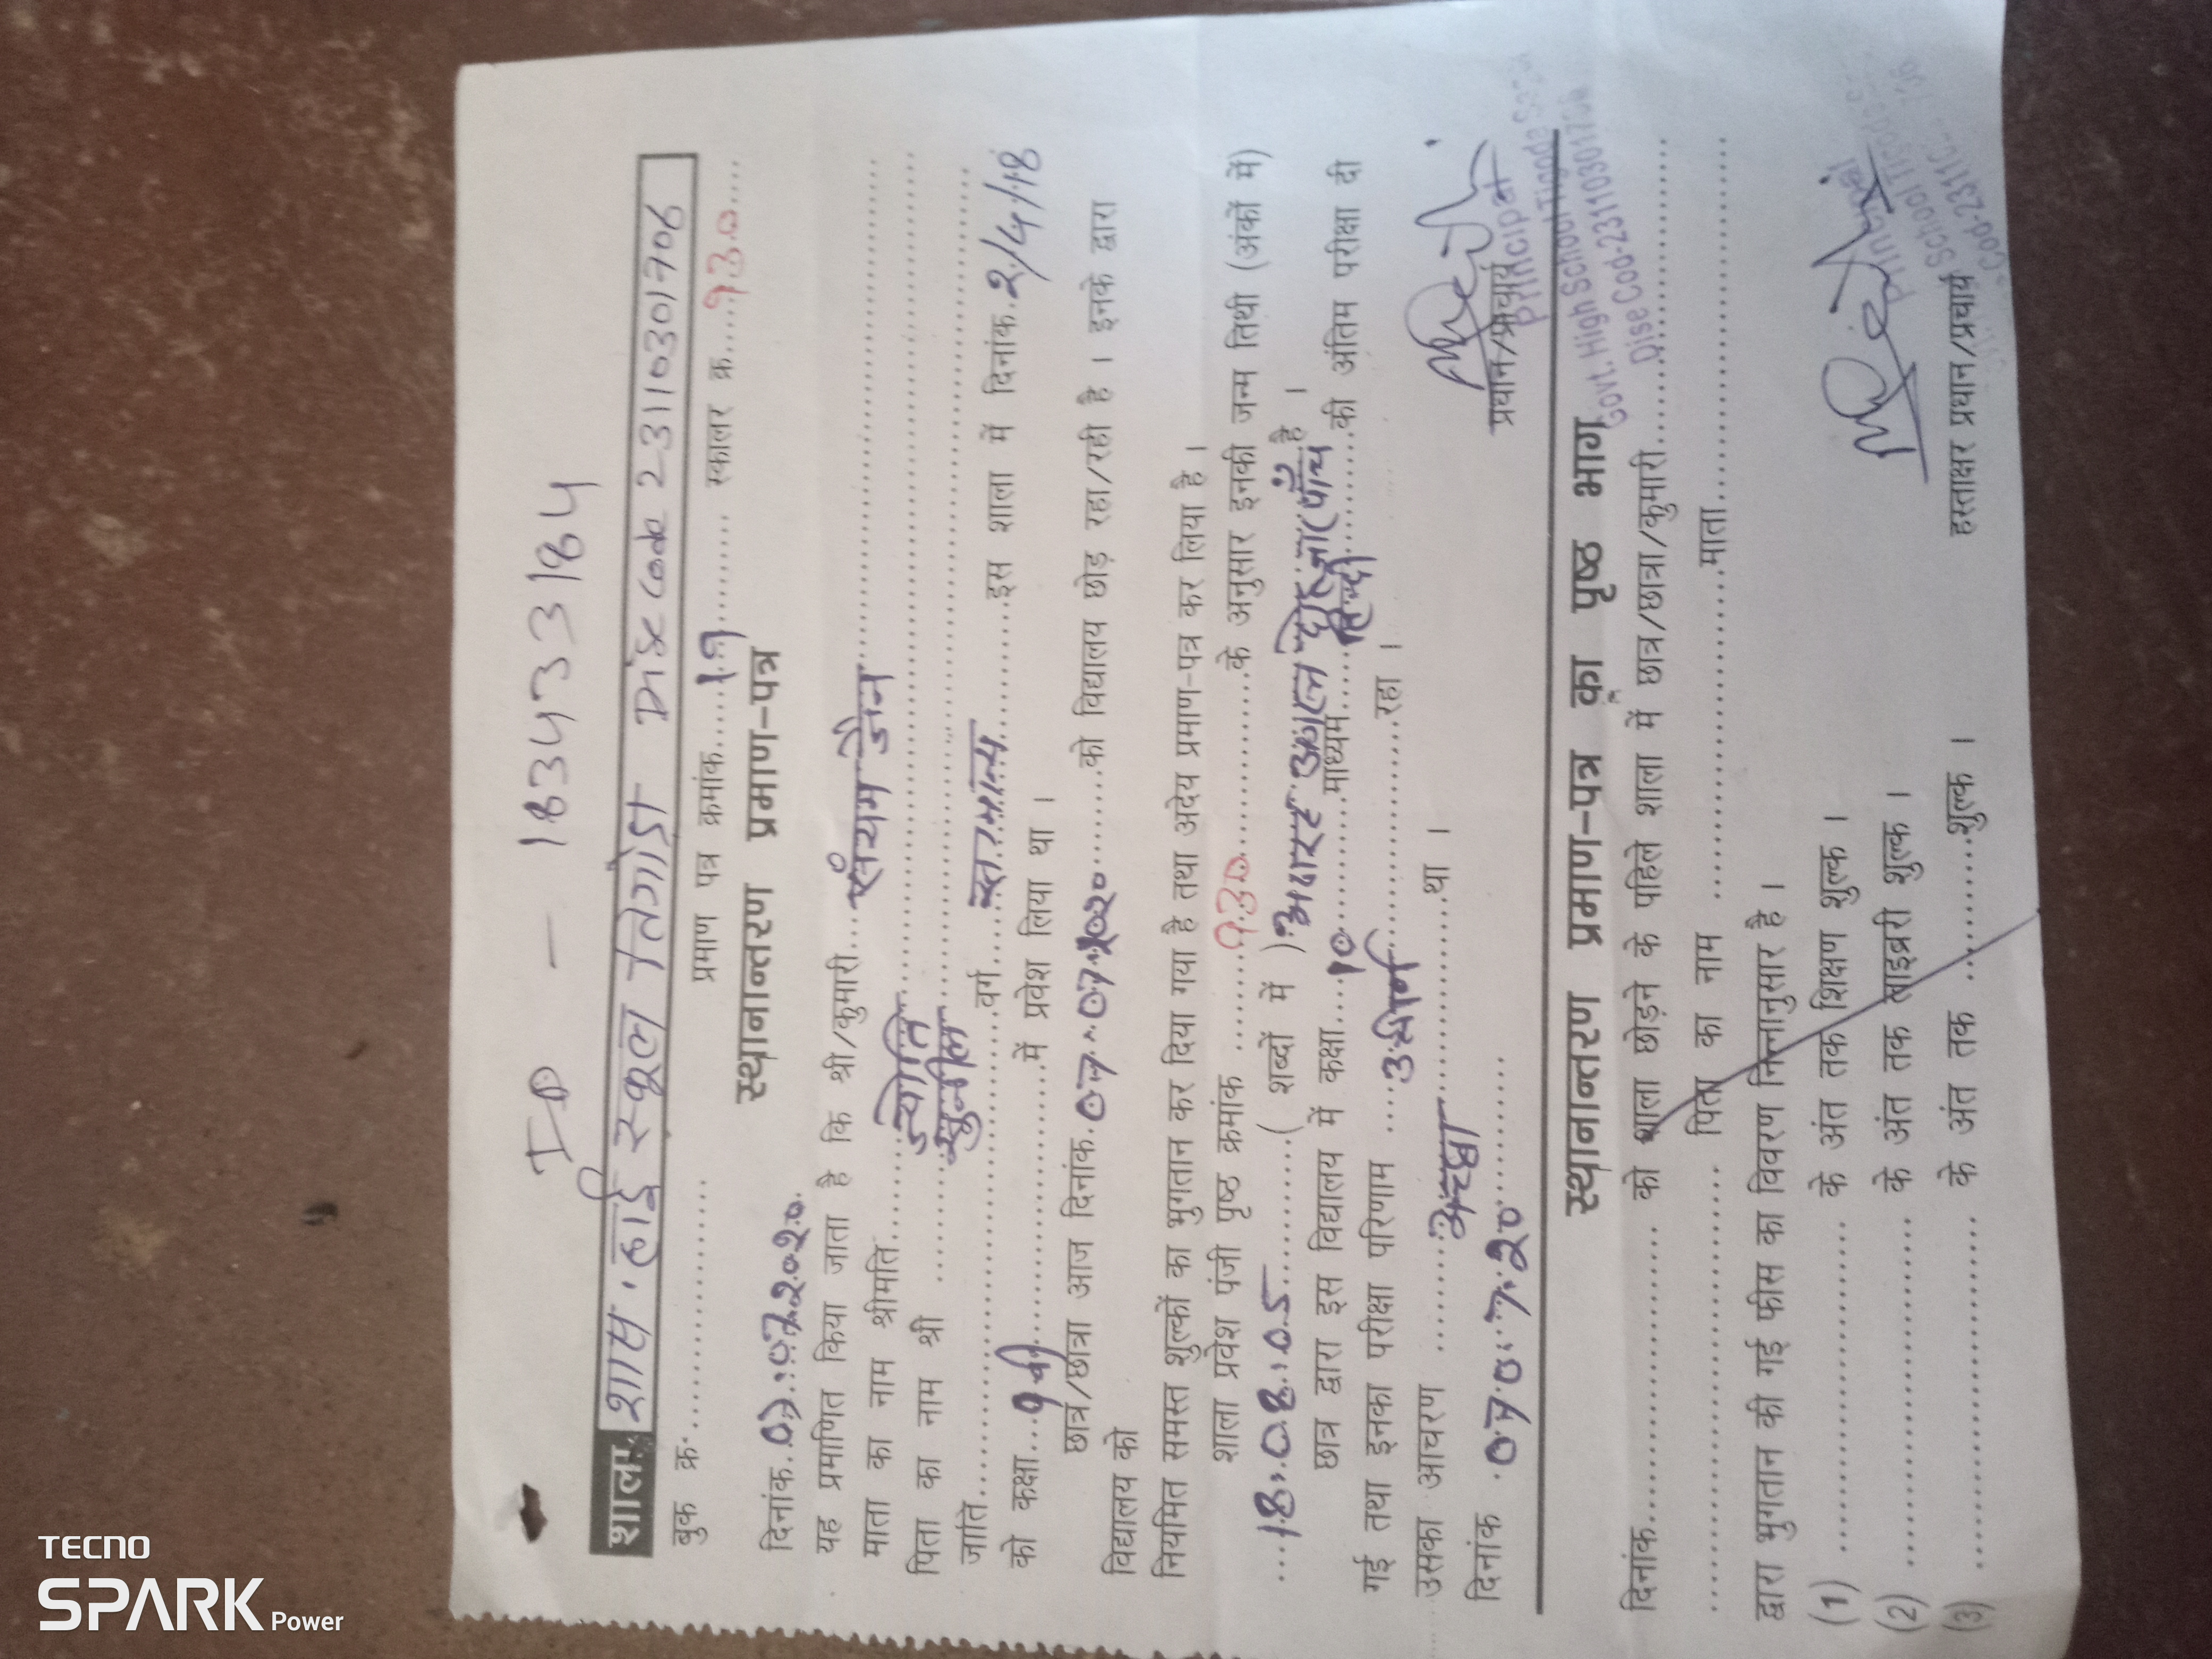 ID - 183433184
शाला शास. हाई स्कूल तिगोड़ा डाईस Code 23110301706
बुक क्र............... प्रमाण पत्र क्रमांक....19.......... स्कालर क्र....930....
स्थानान्तरण प्रमाण-पत्र
दिनांक.07.07.2020.
यह प्रमाणित किया जाता है कि श्री/कुमारी...संयम जैन...
माता का नाम श्रीमति...ज्योति...
पिता का नाम श्री ...सुनील...
जाति...............वर्ग....सामान्य.........इस शाला में दिनांक.2/4/18
को कक्षा...9वीं...............में प्रवेश लिया था ।
छात्र/छात्रा आज दिनांक.07.07.2020......को विद्यालय छोड़ रहा/रही है । इनके द्वारा
विद्यालय को
नियमित समस्त शुल्कों का भुगतान कर दिया गया है तथा अदेय प्रमाण-पत्र कर लिया है ।
शाला प्रवेश पंजी पृष्ठ क्रमांक .......930............के अनुसार इनकी जन्म तिथी (अंकों में)
...18.08.05..........( शब्दों में ) अठारह अगस्त दो हजार पाँच है ।
छात्र द्वारा इस विद्यालय में कक्षा....10..........माध्यम....हिन्दी.........की अंतिम परीक्षा दी
गई तथा इनका परीक्षा परिणाम ....उत्तीर्ण...............रहा ।
उसका आचरण .........अच्छा...............था ।
दिनांक .07.07.20.......... प्रधान/प्राचार्य
Principal
Govt. High School Tigoda
Dise Cod-23110301706
स्थानान्तरण प्रमाण-पत्र का पृष्ठ भाग
दिनांक..................... को शाला छोड़ने के पहिले शाला में छात्र/छात्रा/कुमारी.....................
..................... पिता का नाम .....................माता.....................
द्वारा भुगतान की गई फीस का विवरण निम्नानुसार है ।
(1) ..................... के अंत तक शिक्षण शुल्क ।
(2) ..................... के अंत तक लाइब्ररी शुल्क ।
(3) ..................... के अंत तक ............शुल्क ।
हस्ताक्षर प्रधान/प्रचार्य
Principal
School Tigoda
TECNO
SPARK Power